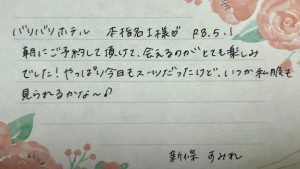 バリバリホテル 本指名I様♡ R8.5.1
朝にご予約して頂けて、会えるのがとても楽しみ
でした!やっぱり今日もスーツだったけど、いつか私服も
見られるかな〜♪
新保 すみれ